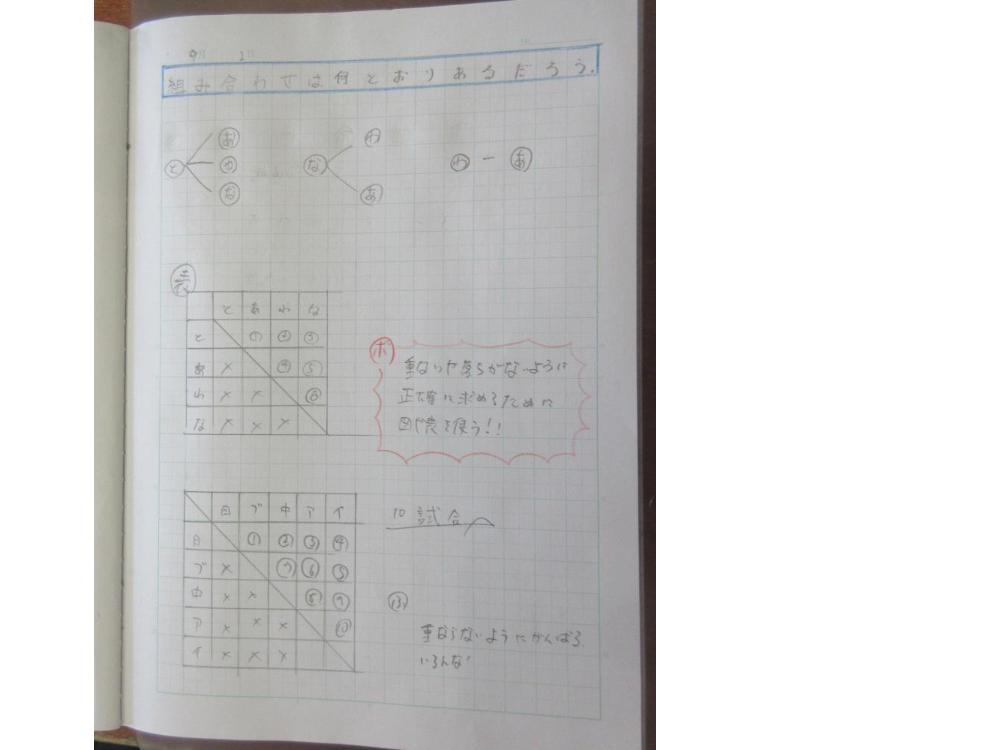 9月 2日
組み合わせは何とおりあるだろう.
と あ わ な
な わ あ
わ ー あ
表
と あ わ な
と ① ② ③
あ × ④ ⑤
わ × × ⑥
な × × ×
ポ
重なりや落ちがないように
正確に求めるために
図や表を使う!!
日 ブ 中 ア イ
日 ① ② ③ ④
ブ × ⑦ ⑥ ⑤
中 × × ⑧ ⑨
ア × × × ⑩
イ × × ×
10試合
ふ
重ならないようにがんばる
いろんな